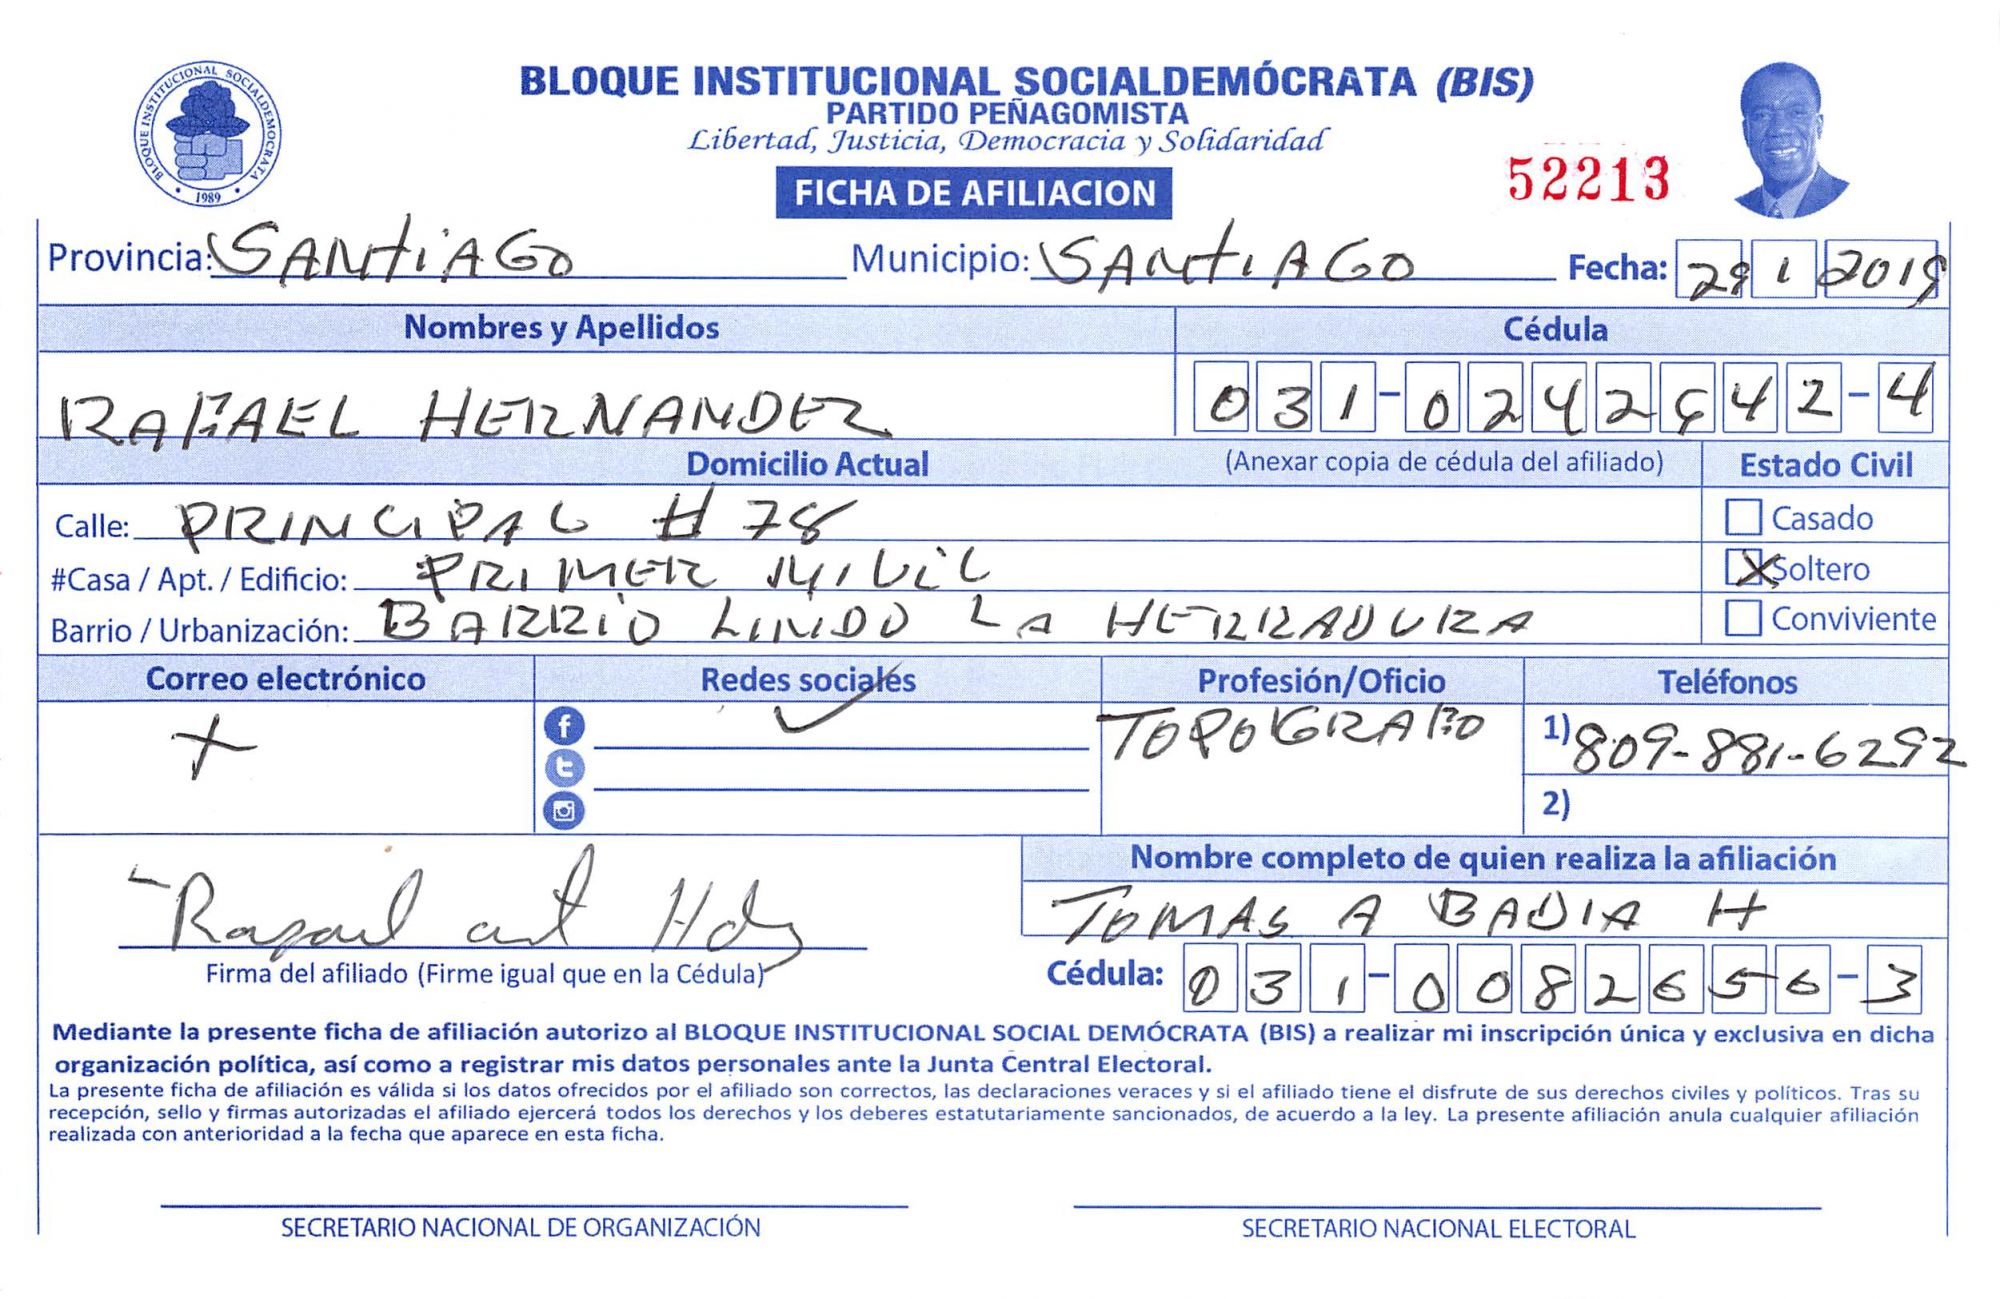 BLOQUE INSTITUCIONAL SOCIALDEMOCRATA
1989
BLOQUE INSTITUCIONAL SOCIALDEMÓCRATA (BIS)
PARTIDO PEÑAGOMISTA
Libertad, Justicia, Democracia y Solidaridad
FICHA DE AFILIACION
52213
Provincia: SANTIAGO Municipio: SANTIAGO Fecha: 29 1 2019
Nombres y Apellidos Cédula
RAFAEL HERNANDEZ 031-0242642-4
Domicilio Actual (Anexar copia de cédula del afiliado) Estado Civil
Calle: PRINCIPAL # 78 Casado
#Casa / Apt. / Edificio: PRIMER X Soltero
Barrio / Urbanización: BARRIO LINDO LA HERRADURA Conviviente
Correo electrónico Redes sociales Profesión/Oficio Teléfonos
TOPOGRAFO 1) 809-881-6292
2)
Nombre completo de quien realiza la afiliación
Rafael ant Hdz TOMAS A BADIA H
Firma del afiliado (Firme igual que en la Cédula) Cédula: 031-0082656-3
Mediante la presente ficha de afiliación autorizo al BLOQUE INSTITUCIONAL SOCIAL DEMÓCRATA (BIS) a realizar mi inscripción única y exclusiva en dicha
organización política, así como a registrar mis datos personales ante la Junta Central Electoral.
La presente ficha de afiliación es válida si los datos ofrecidos por el afiliado son correctos, las declaraciones veraces y si el afiliado tiene el disfrute de sus derechos civiles y políticos. Tras su
recepción, sello y firmas autorizadas el afiliado ejercerá todos los derechos y los deberes estatutariamente sancionados, de acuerdo a la ley. La presente afiliación anula cualquier afiliación
realizada con anterioridad a la fecha que aparece en esta ficha.
SECRETARIO NACIONAL DE ORGANIZACIÓN SECRETARIO NACIONAL ELECTORAL